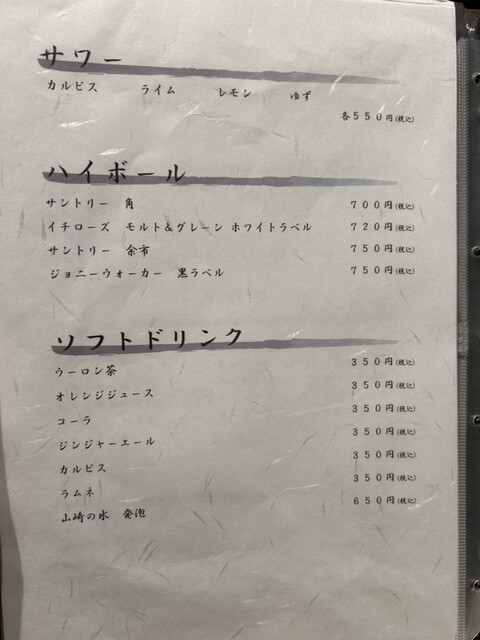 サワー
カルピス ライム レモン ゆず
各５５０円(税込)
ハイボール
サントリー 角 ７００円(税込)
イチローズ モルト＆グレーン ホワイトラベル ７２０円(税込)
サントリー 余市 ７５０円(税込)
ジョニーウォーカー 黒ラベル ７５０円(税込)
ソフトドリンク
ウーロン茶 ３５０円(税込)
オレンジジュース ３５０円(税込)
コーラ ３５０円(税込)
ジンジャーエール ３５０円(税込)
カルピス ３５０円(税込)
ラムネ ３５０円(税込)
山崎の水 発泡 ６５０円(税込)